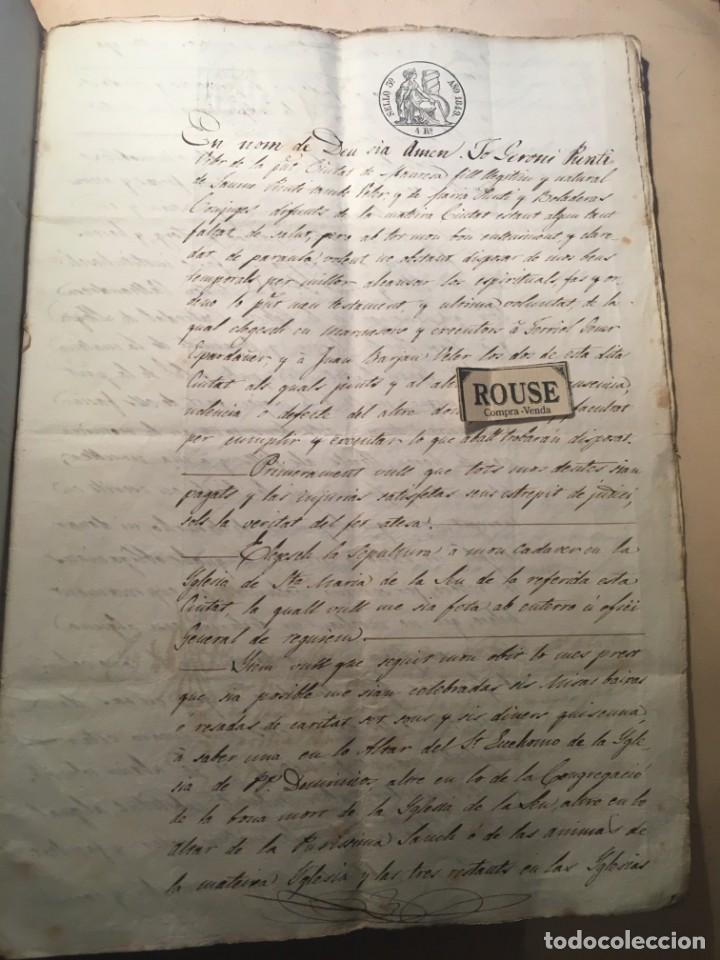 SELLO 3º AÑO 1849.
4 Rs
En nom de Deu sia Amen. Jo Geroni
de la pñt Ciutat de Manresa fill llegitim y natural
de Jaume y de Maria y Boladeras
Conjuges defunts de la mateixa Ciutat estant algun tant
faltat de salut, pero ab tot mon bon enteniment y clare
dat de paraula, volent no obstant disposar de mos bens
temporals per millor alcansar los espirituals, fas y or
deno lo pñt meu testament, y ultima voluntat, de la
qual elegesch en marmesors y executors à
y à Juan Barjau Veler los dos de esta dita
Ciutat als quals junts y al
valencia ò defecte del altre facultat
per cumplir y executar lo que aball trobarán disposat.
Primerament vull que tots mos deutes sian
pagats y las injurias satisfetas sens estrepit de judici,
sols la veritat del fet atesa.
Elegesch la sepultura à mon cadaver en la
Yglesia de Sta Maria de la Seu de la referida esta
Ciutat la quall vull me sia feta ab enterro ú ofici
General de requiem.
Ytem vull que seguit mon obit lo mes prest
que sia posible me sian celebradas sis Misas baixas
ó resadas de caritat set sous y sis diners quiscuna,
à saber una en lo Altar del St Eccehomo de la Ygle-
sia de PP. Dominicos, altre en lo de la Congregació
de la bona mort de la Yglesia de la Seu, altre en lo
altar de la Purissima Sanch ó de las animas de
la mateixa Yglesia y las tres restants en las Yglesias
ROUSE
Compra-Venda
todocoleccion